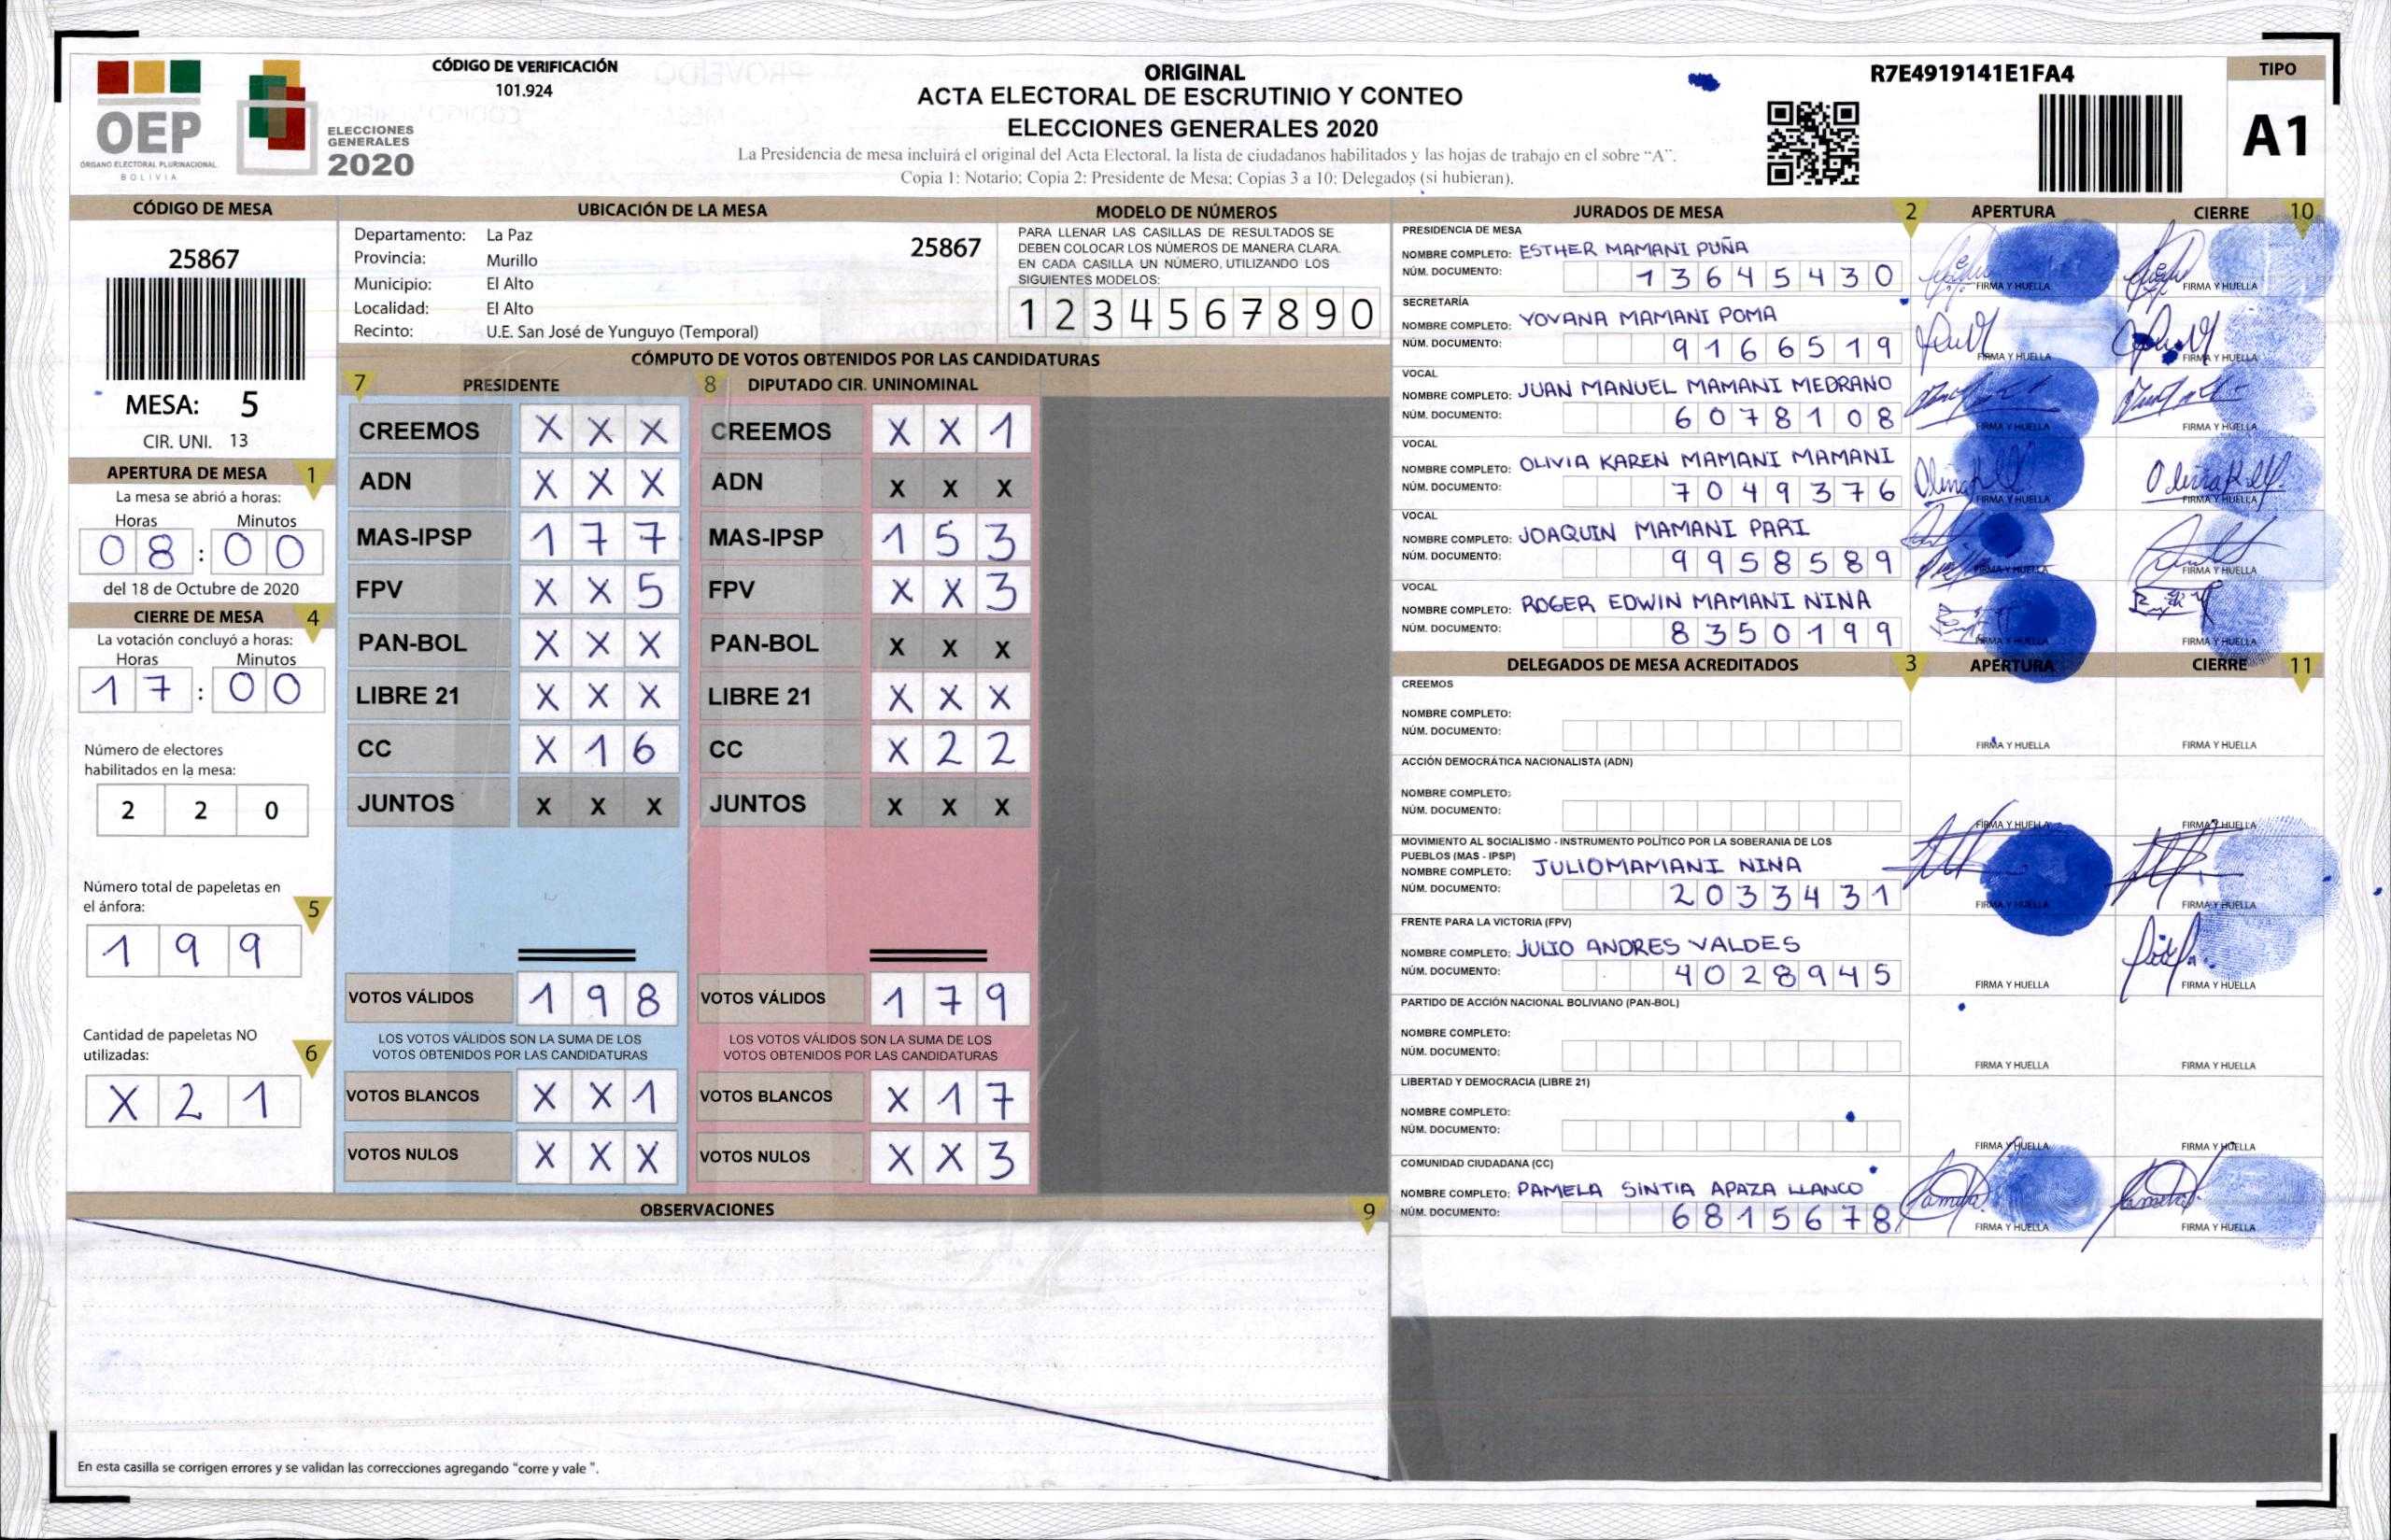 CÓDIGO DE VERIFICACIÓN
101.924
OEP
ÓRGANO ELECTORAL PLURINACIONAL
BOLIVIA
ELECCIONES
GENERALES
2020
ORIGINAL
ACTA ELECTORAL DE ESCRUTINIO Y CONTEO
ELECCIONES GENERALES 2020
La Presidencia de mesa incluirá el original del Acta Electoral, la lista de ciudadanos habilitados y las hojas de trabajo en el sobre "A".
Copia 1: Notario; Copia 2: Presidente de Mesa; Copias 3 a 10: Delegados (si hubieran).
R7E4919141E1FA4
TIPO
A1
CÓDIGO DE MESA
25867
MESA: 5
CIR. UNI. 13
APERTURA DE MESA 1
La mesa se abrió a horas:
Horas Minutos
08:00
del 18 de Octubre de 2020
CIERRE DE MESA 4
La votación concluyó a horas:
Horas Minutos
17:00
Número de electores
habilitados en la mesa:
2 2 0
Número total de papeletas en
el ánfora: 5
1 9 9
Cantidad de papeletas NO
utilizadas: 6
X 2 1
UBICACIÓN DE LA MESA
Departamento: La Paz
25867
Provincia: Murillo
Municipio: El Alto
Localidad: El Alto
Recinto: U.E. San José de Yunguyo (Temporal)
MODELO DE NÚMEROS
PARA LLENAR LAS CASILLAS DE RESULTADOS SE
DEBEN COLOCAR LOS NÚMEROS DE MANERA CLARA.
EN CADA CASILLA UN NÚMERO, UTILIZANDO LOS
SIGUIENTES MODELOS:
1 2 3 4 5 6 7 8 9 0
CÓMPUTO DE VOTOS OBTENIDOS POR LAS CANDIDATURAS
7 PRESIDENTE
CREEMOS X X X
ADN X X X
MAS-IPSP 1 7 7
FPV X X 5
PAN-BOL X X X
LIBRE 21 X X X
CC X 1 6
JUNTOS X X X
VOTOS VÁLIDOS 1 9 8
LOS VOTOS VÁLIDOS SON LA SUMA DE LOS
VOTOS OBTENIDOS POR LAS CANDIDATURAS
VOTOS BLANCOS X X 1
VOTOS NULOS X X X
8 DIPUTADO CIR. UNINOMINAL
CREEMOS X X 1
ADN X X X
MAS-IPSP 1 5 3
FPV X X 3
PAN-BOL X X X
LIBRE 21 X X X
CC X 2 2
JUNTOS X X X
VOTOS VÁLIDOS 1 7 9
LOS VOTOS VÁLIDOS SON LA SUMA DE LOS
VOTOS OBTENIDOS POR LAS CANDIDATURAS
VOTOS BLANCOS X 1 7
VOTOS NULOS X X 3
OBSERVACIONES 9
En esta casilla se corrigen errores y se validan las correcciones agregando "corre y vale ".
JURADOS DE MESA 2 APERTURA CIERRE 10
PRESIDENCIA DE MESA
NOMBRE COMPLETO: ESTHER MAMANI PUÑA
NÚM. DOCUMENTO: 13645430
FIRMA Y HUELLA FIRMA Y HUELLA
SECRETARÍA
NOMBRE COMPLETO: YOVANA MAMANI POMA
NÚM. DOCUMENTO: 9166519
FIRMA Y HUELLA FIRMA Y HUELLA
VOCAL
NOMBRE COMPLETO: JUAN MANUEL MAMANI MEDRANO
NÚM. DOCUMENTO: 6078108
FIRMA Y HUELLA FIRMA Y HUELLA
VOCAL
NOMBRE COMPLETO: OLIVIA KAREN MAMANI MAMANI
NÚM. DOCUMENTO: 7049376
FIRMA Y HUELLA FIRMA Y HUELLA
VOCAL
NOMBRE COMPLETO: JOAQUIN MAMANI PARI
NÚM. DOCUMENTO: 9958589
FIRMA Y HUELLA FIRMA Y HUELLA
VOCAL
NOMBRE COMPLETO: ROGER EDWIN MAMANI NINA
NÚM. DOCUMENTO: 8350199
FIRMA Y HUELLA FIRMA Y HUELLA
DELEGADOS DE MESA ACREDITADOS 3 APERTURA CIERRE 11
CREEMOS
NOMBRE COMPLETO:
NÚM. DOCUMENTO:
FIRMA Y HUELLA FIRMA Y HUELLA
ACCIÓN DEMOCRÁTICA NACIONALISTA (ADN)
NOMBRE COMPLETO:
NÚM. DOCUMENTO:
FIRMA Y HUELLA FIRMA Y HUELLA
MOVIMIENTO AL SOCIALISMO - INSTRUMENTO POLÍTICO POR LA SOBERANIA DE LOS
PUEBLOS (MAS - IPSP)
NOMBRE COMPLETO: JULIO MAMANI NINA
NÚM. DOCUMENTO: 2033431
FIRMA Y HUELLA FIRMA Y HUELLA
FRENTE PARA LA VICTORIA (FPV)
NOMBRE COMPLETO: JULIO ANDRES VALDES
NÚM. DOCUMENTO: 4028945
FIRMA Y HUELLA FIRMA Y HUELLA
PARTIDO DE ACCIÓN NACIONAL BOLIVIANO (PAN-BOL)
NOMBRE COMPLETO:
NÚM. DOCUMENTO:
FIRMA Y HUELLA FIRMA Y HUELLA
LIBERTAD Y DEMOCRACIA (LIBRE 21)
NOMBRE COMPLETO:
NÚM. DOCUMENTO:
FIRMA Y HUELLA FIRMA Y HUELLA
COMUNIDAD CIUDADANA (CC)
NOMBRE COMPLETO: PAMELA SINTIA APAZA LLANCO
NÚM. DOCUMENTO: 6815678
FIRMA Y HUELLA FIRMA Y HUELLA